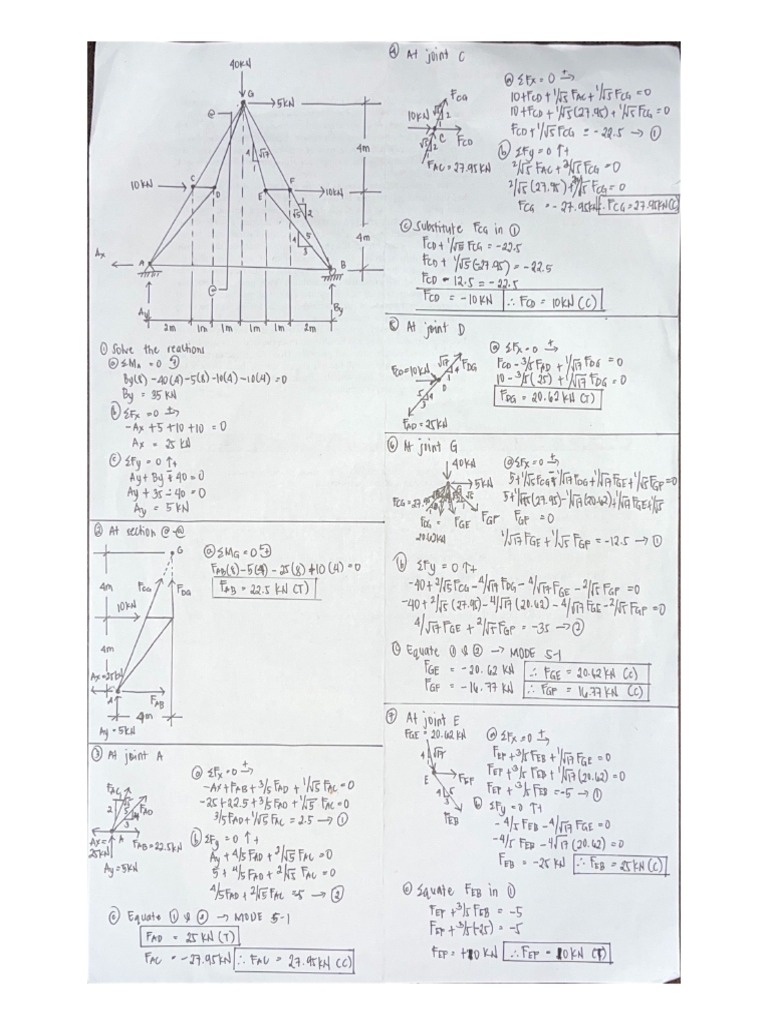 40KN
G
5KN
@
4
√17
4m
10KN
C
D
E
F
10KN
1
√5
2
4
5
3
4m
Ax
A
B
@
Ay
By
2m 1m 1m 1m 1m 2m
① Solve the reactions
ⓐ ΣMA = 0
By(8) -40(4) -5(8) -10(4) -10(4) = 0
By = 35 KN
ⓑ ΣFx = 0 →+
-Ax + 5 + 10 + 10 = 0
Ax = 25 KN
ⓒ ΣFy = 0 ↑+
Ay + By - 40 = 0
Ay + 35 - 40 = 0
Ay = 5 KN
② At section @-@
G
4m
FCG
FDG
10KN
4m
Ax=25KN
A
FAB
4m
Ay=5KN
ⓐ ΣMG = 0
FAB(8) -5(4) - 25(8) +10(4) = 0
FAB = 22.5 KN (T)
③ At joint A
FAC
FAD
Ax=25KN
A
FAB=22.5KN
Ay=5KN
ⓐ ΣFx = 0 →+
-Ax + FAB + 3/5 FAD + 1/√5 FAC = 0
-25 + 22.5 + 3/5 FAD + 1/√5 FAC = 0
3/5 FAD + 1/√5 FAC = 2.5 → ①
ⓑ ΣFy = 0 ↑+
Ay + 4/5 FAD + 2/√5 FAC = 0
5 + 4/5 FAD + 2/√5 FAC = 0
4/5 FAD + 2/√5 FAC = -5 → ②
ⓒ Equate ① & ② → MODE 5-1
FAD = 25 KN (T)
FAC = -27.95 KN ∴ FAC = 27.95 KN (C)
④ At joint C
FCG
10KN
C
FCD
FAC = 27.95 KN
ⓐ ΣFx = 0 →+
10 + FCD + 1/√5 FAC + 1/√5 FCG = 0
10 + FCD + 1/√5 (27.95) + 1/√5 FCG = 0
FCD + 1/√5 FCG = -22.5 → ①
ⓑ ΣFy = 0 ↑+
2/√5 FAC + 2/√5 FCG = 0
2/√5 (27.95) + 2/√5 FCG = 0
FCG = -27.95KN ∴ FCG = 27.95KN (C)
ⓒ Substitute FCG in ①
FCD + 1/√5 FCG = -22.5
FCD + 1/√5 (-27.95) = -22.5
FCD - 12.5 = -22.5
FCD = -10 KN ∴ FCD = 10KN (C)
⑤ At joint D
FCD=10KN
√17
4
1
FDG
D
5
4
3
FAD=25KN
ⓐ ΣFx = 0 →+
FCD - 3/5 FAD + 1/√17 FDG = 0
10 - 3/5 (25) + 1/√17 FDG = 0
FDG = 20.62 KN (T)
⑥ At joint G
40KN
5KN
FCG=27.95
FDG = 20.62KN
FGE
FGF
ⓐ ΣFx = 0 →+
5 + 1/√5 FCG - 1/√17 FDG + 1/√17 FGE + 1/√5 FGF = 0
5 + 1/√5 (27.95) - 1/√17 (20.62) + 1/√17 FGE + 1/√5
FGF = 0
1/√17 FGE + 1/√5 FGF = -12.5 → ①
ⓑ ΣFy = 0 ↑+
-40 + 2/√5 FCG - 4/√17 FDG - 4/√17 FGE - 2/√5 FGF = 0
-40 + 2/√5 (27.95) - 4/√17 (20.62) - 4/√17 FGE - 2/√5 FGF = 0
4/√17 FGE + 2/√5 FGF = -35 → ②
ⓒ Equate ① & ② → MODE 5-1
FGE = -20.62 KN ∴ FGE = 20.62 KN (C)
FGF = -16.77 KN ∴ FGF = 16.77 KN (C)
⑦ At joint E
FGE = 20.62 KN
4
√17
E
FEF
4
5
3
FEB
ⓐ ΣFx = 0 →+
FEF + 3/5 FEB + 1/√17 FGE = 0
FEF + 3/5 FEB + 1/√17 (20.62) = 0
FEF + 3/5 FEB = -5 → ①
ⓑ ΣFy = 0 ↑+
-4/5 FEB - 4/√17 FGE = 0
-4/5 FEB - 4/√17 (20.62) = 0
FEB = -25 KN ∴ FEB = 25 KN (C)
ⓒ Equate FEB in ①
FEF + 3/5 FEB = -5
FEF + 3/5 (-25) = -5
FEF = +10 KN ∴ FEF = 10 KN (T)